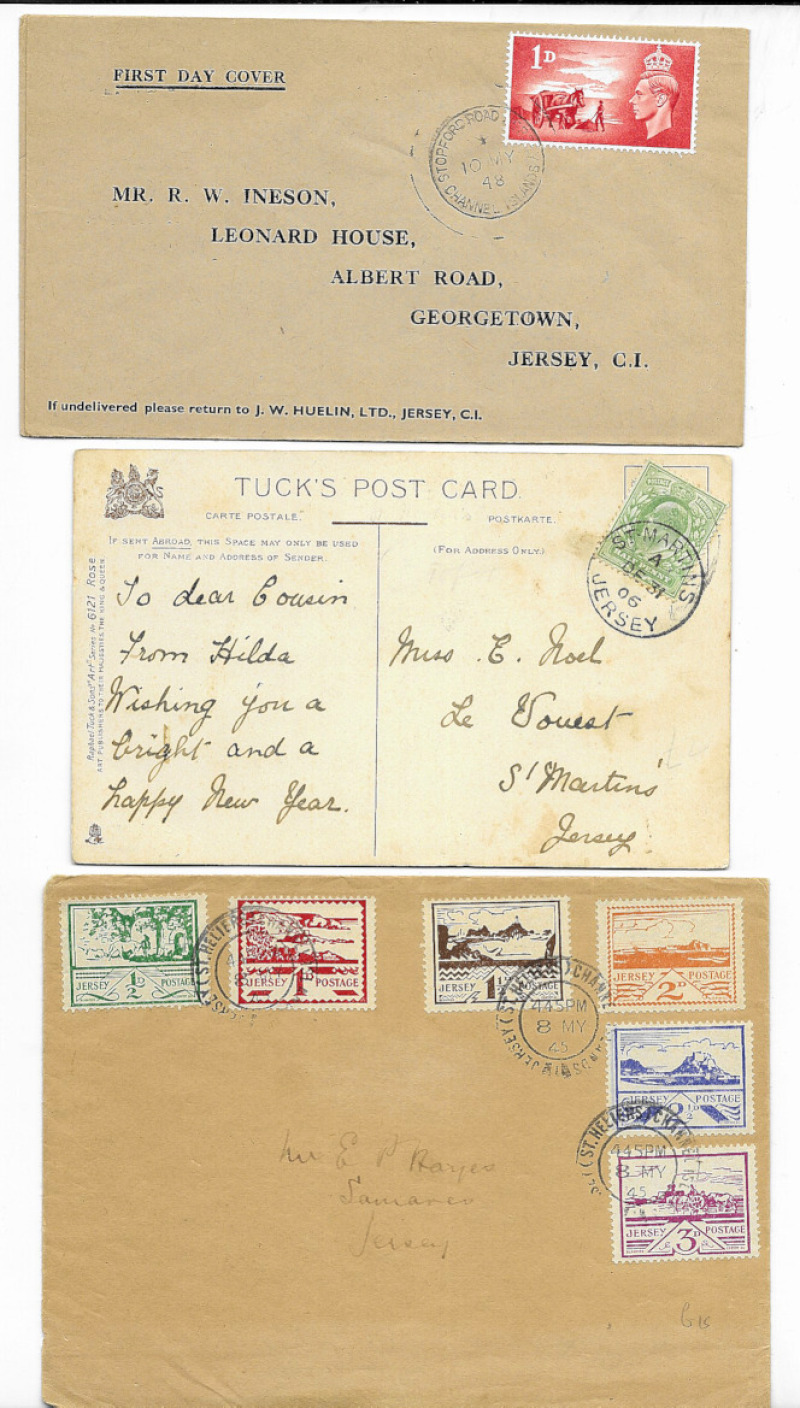 FIRST DAY COVER
1D
STOPFORD ROAD
10 MY
48
CHANNEL ISLANDS
MR. R. W. INESON,
LEONARD HOUSE,
ALBERT ROAD,
GEORGETOWN,
JERSEY, C.I.
If undelivered please return to J. W. HUELIN, LTD., JERSEY, C.I.
TUCK'S POST CARD.
CARTE POSTALE.
POSTKARTE.
IF SENT ABROAD, THIS SPACE MAY ONLY BE USED
FOR NAME AND ADDRESS OF SENDER.
(FOR ADDRESS ONLY.)
Raphael Tuck & Sons' "Art" Series No 6121 Rose
ART PUBLISHERS TO THEIR MAJESTIES THE KING & QUEEN
POSTAGE
ST. MARTINS
4
DE 31
06
JERSEY
To dear Cousin
From Hilda
Wishing you a
bright and a
happy New Year.
Miss. E. Noel
Le Vouest
St Martins
Jersey
JERSEY 1/2D POSTAGE
JERSEY 1D POSTAGE
JERSEY 1 1/2D POSTAGE
JERSEY 2D POSTAGE
JERSEY (ST. HELIERS)
JERSEY (ST. HELIERS) CHANNEL ISLANDS
4 45 PM
8 MY
45
JERSEY 2 1/2D POSTAGE
(ST. HELIERS) CHANNEL
4 45 PM
8 MY
45
JERSEY 3D POSTAGE
Mr E P Hayes
Samares
Jersey